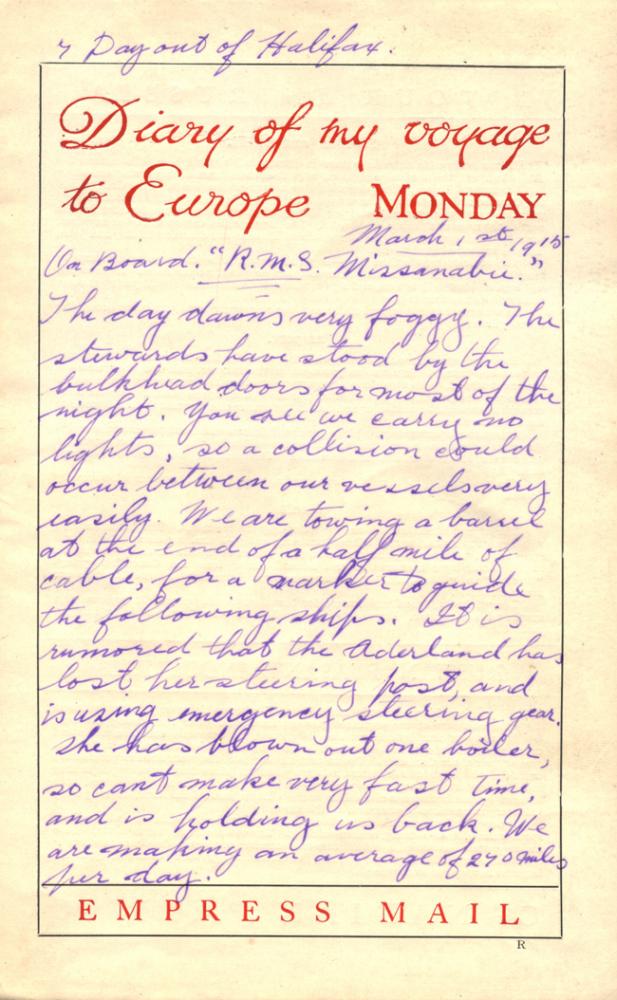 7 Day out of Halifax.
Diary of my voyage
to Europe MONDAY
March 1st, 1915
On Board. "R.M.S. Missanabie."
The day dawns very foggy. The
stewards have stood by the
bulkhead doors for most of the
night. You see we carry no
lights, so a collision could
occur between our vessels very
easily. We are towing a barrel
at the end of a half mile of
cable, for a marker to guide
the following ships. It is
rumored that the Aderland has
lost her steering post, and
is using emergency steering gear.
She has blown out one boiler,
so cant make very fast time,
and is holding us back. We
are making an average of 270 miles
per day.
EMPRESS MAIL
R